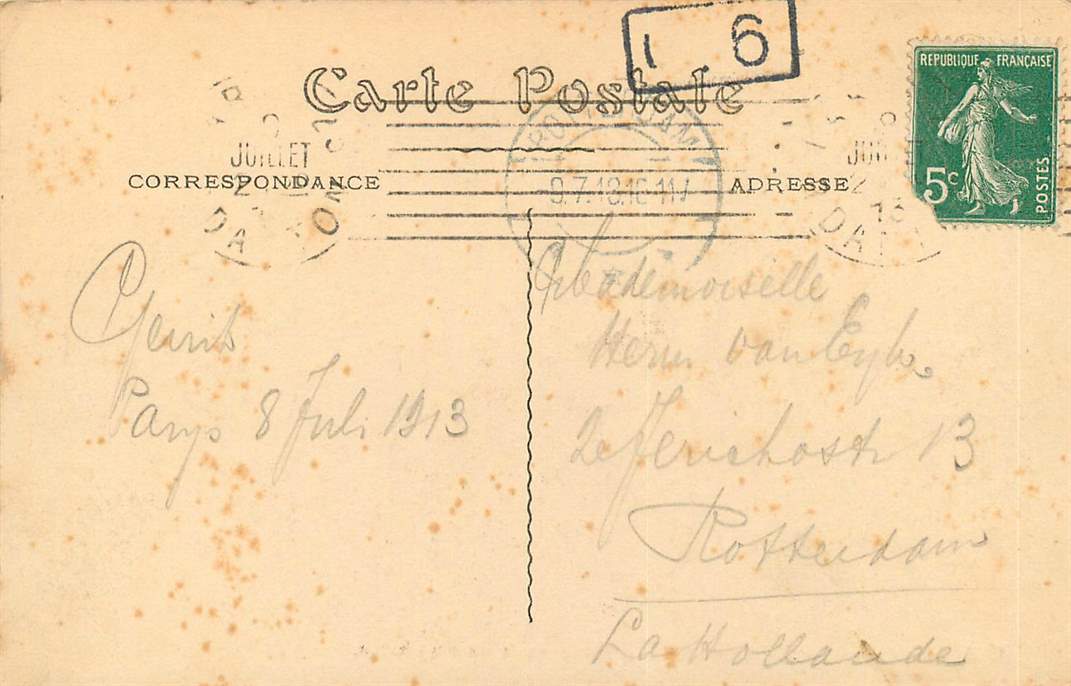 1 6
Carte Postale
REPUBLIQUE FRANÇAISE
5c
POSTES
JUILLET
ROTTERDAM
9.7.13.10-11V
CORRESPONDANCE
ADRESSE
13
Gerrit
Parijs 8 Juli 1913
Mademoiselle
Herm van Eyk
2e Jerichostr 13
Rotterdam
La Hollande